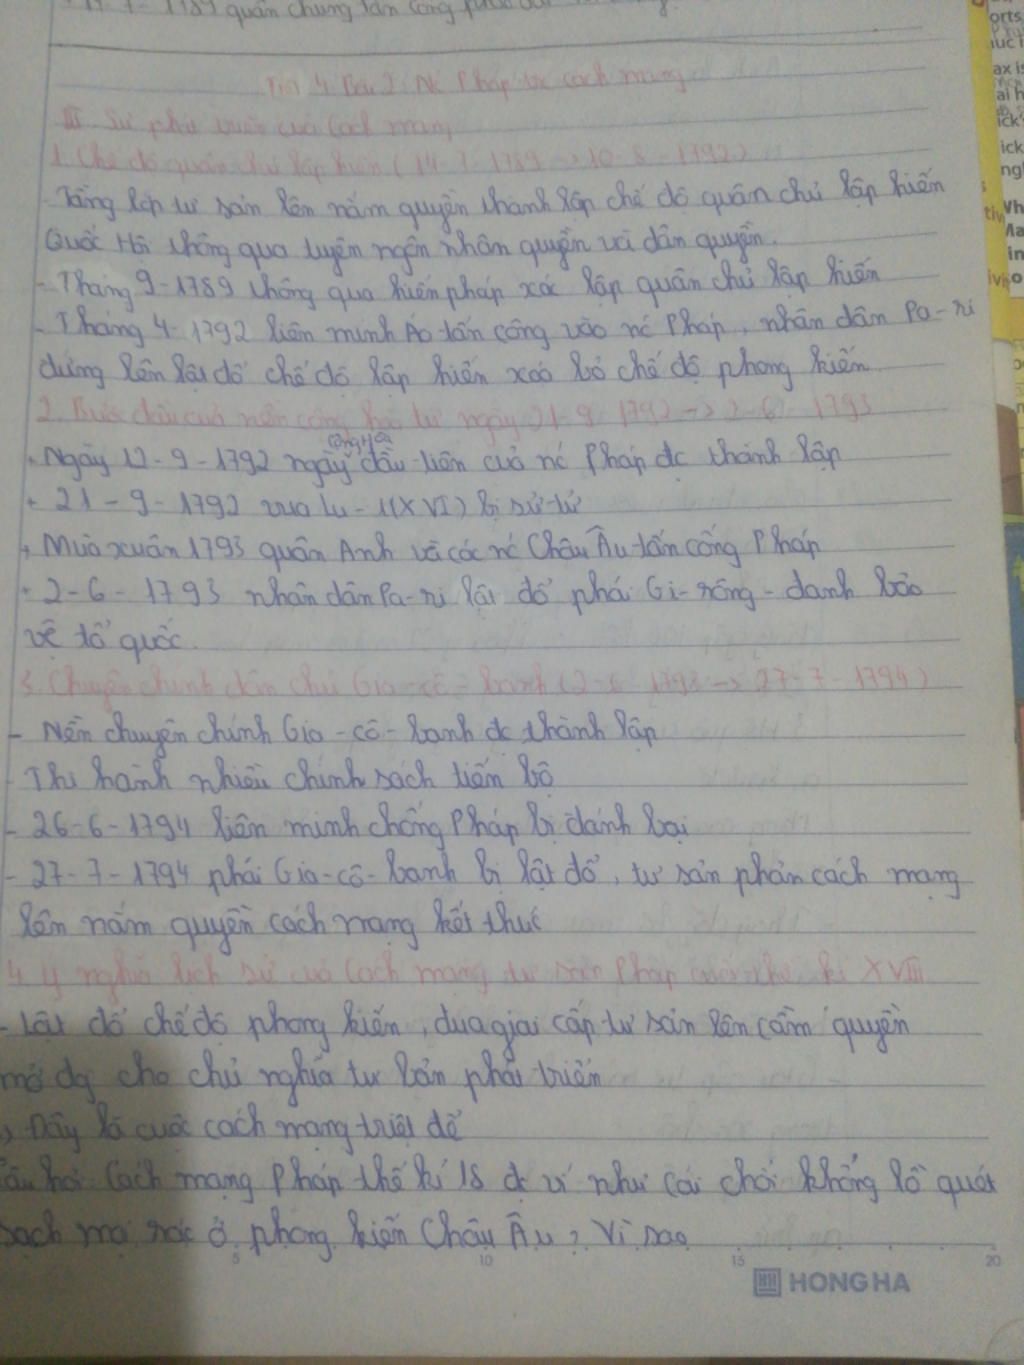 14-7-1789 quần chúng tấn công
Tiết 4 Bài 2: Nc Pháp và cách mạng
III. Sự phát triển của Cách mạng
1. Chế độ quân chủ lập hiến (14-7-1789 -> 10-8-1792)
- Tầng lớp tư sản lên nắm quyền thành lập chế độ quân chủ lập hiến
Quốc Hội thông qua tuyên ngôn nhân quyền và dân quyền.
- Tháng 9-1789 thông qua hiến pháp xác lập quân chủ lập hiến
- Tháng 4-1792 liên minh Áo tấn công vào nc Pháp, nhân dân Pa-ri
đứng lên lật đổ chế độ lập hiến xoá bỏ chế độ phong kiến
2. Bước đầu của nền cộng hoà từ ngày 21-9-1792 -> 2-6-1793
cộng hoà
+ Ngày 12-9-1792 ngày đầu tiên của nc Pháp đc thành lập
+ 21-9-1792 vua lu-i(XVI) bị sử tử
+ Mùa xuân 1793 quân Anh và các nc Châu Âu tấn công Pháp
+ 2-6-1793 nhân dân Pa-ri lật đổ phái Gi-rông-danh bảo
vệ tổ quốc.
3. Chuyên chính dân chủ Gia-cô-banh (2-6-1793 -> 27-7-1794)
- Nền chuyên chính Gia-cô-banh đc thành lập
- Thi hành nhiều chính sách tiến bộ
- 26-6-1794 liên minh chống Pháp bị đánh bại
- 27-7-1794 phái Gia-cô-banh bị lật đổ, tư sản phản cách mạng
lên nắm quyền cách mạng kết thúc
4. Ý nghĩa lịch sử của Cách mạng tư sản Pháp cuối thế kỉ XVIII
- Lật đổ chế độ phong kiến, đưa giai cấp tư sản lên cầm quyền
mở đg cho chủ nghĩa tư bản phát triển
> Đây là cuộc cách mạng triệt để
Câu hỏi: Cách mạng Pháp thế kỉ 18 đc ví như cái chổi khổng lồ quét
sạch mọi rác ở phong kiến Châu Âu? Vì sao
5 10 15 20
HONG HA